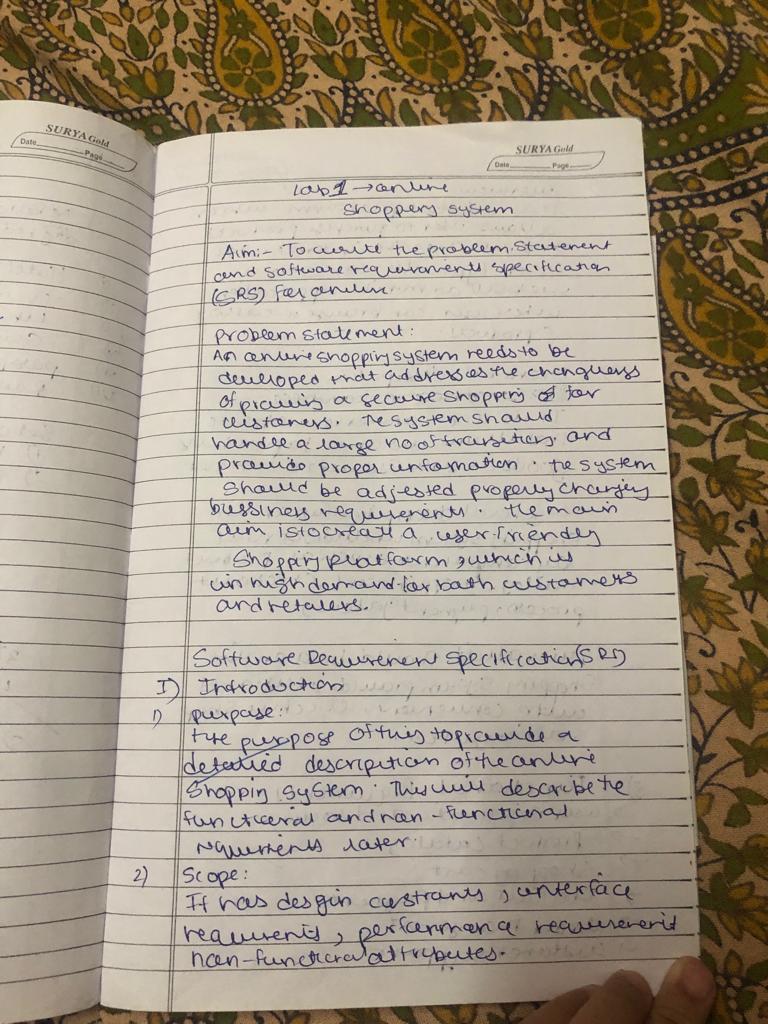 SURYA Gold
Date Page
SURYA Gold
Date Page
Lab 1 → online
Shopping system
Aim:- To write the problem statement
and software requirements specification
(SRS) for online
problem statement:
An online shopping system needs to be
developed that addresses the changes
of providing a secure shopping for
customers. The system should
handle a large no of transitions, and
provide proper information. The system
should be adjested properly changing
bussiness requirements. The main
aim is to create a user-friendly
Shopping platform, which is
in high demand for both customers
and retailers.
Software Requirement Specification (SRS)
I) Introduction
1) purpose:
The purpose of this to provide a
detailed description of the online
Shopping System. This will describe the
functional and non-functional
requirements later.
2) Scope:
It has desgin constraints, interface
requirements, performance requirement
non-functional attributes.